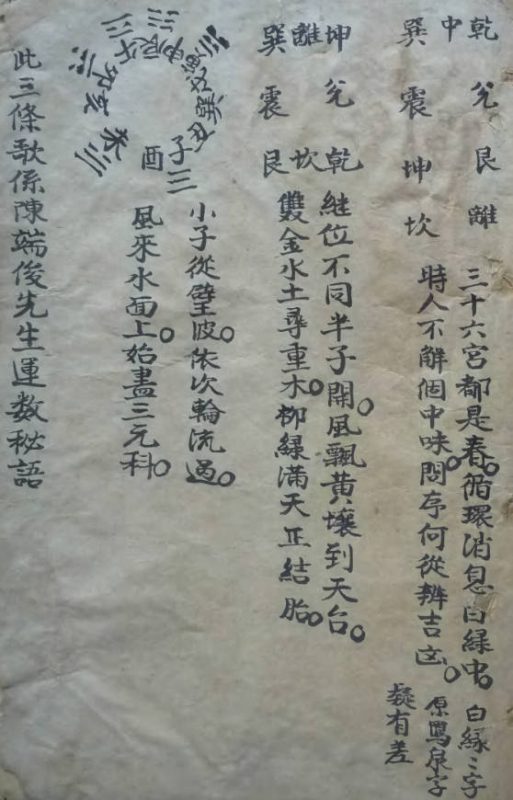 乾 兌 艮 離 三十六宮都是春。循環消息白緑中。白緑二字
中
巽 震 坤 坎 時人不解個中味。問君何從辨吉凶。原寫泉字
疑有差
坤 兌 乾 繼位不同半子開。風飄黃壤到天台。
離 坎
巽 震 艮 雙金水土尋重木。柳緑滿天正結胎。
小子從壁波。依次輪流過。
風來水面上。始盡三元科。
子
酉
此三條歌係陳端俊先生運數秘語